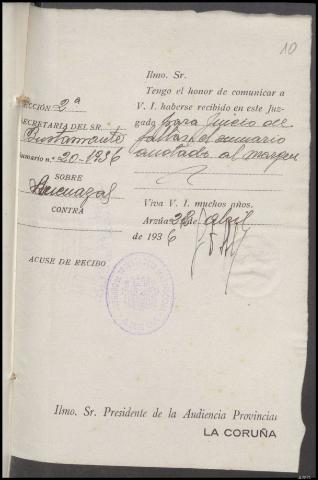 10
Ilmo. Sr.
Tengo el honor de comunicar a
V. I. haberse recibido en este Juz-
gado para juicio de
faltas el sumario
anotado al margen
Viva V. I. muchos años.
Arzúa 28 de abril
de 1936
CCIÓN 2ª
ECRETARIA DEL SR.
Bustamante
umario n.º 20-1936
SOBRE
Amenazas
CONTRA
ACUSE DE RECIBO
Ilmo. Sr. Presidente de la Audiencia Provincial
LA CORUÑA